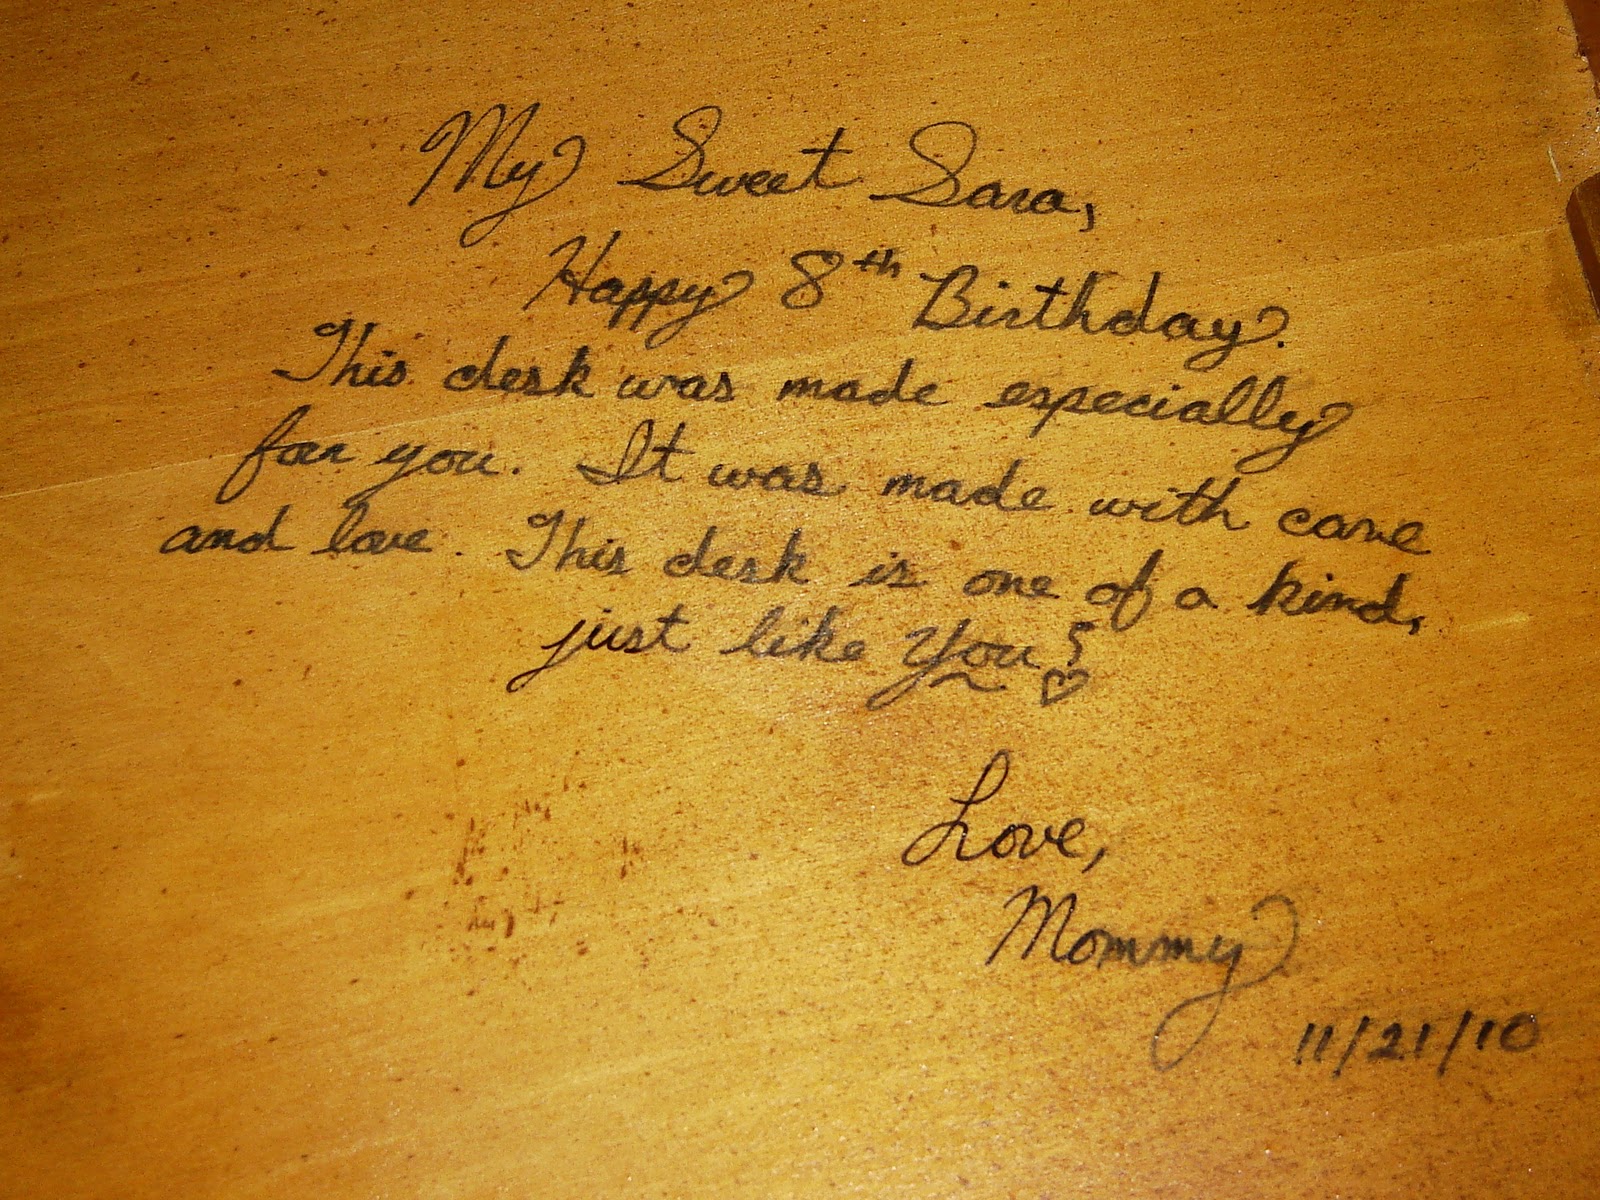 My Sweet Sara,
Happy 8th Birthday.
This desk was made especially
for you. It was made with care
and love. This desk is one of a kind,
just like You!
Love,
Mommy
11/21/10